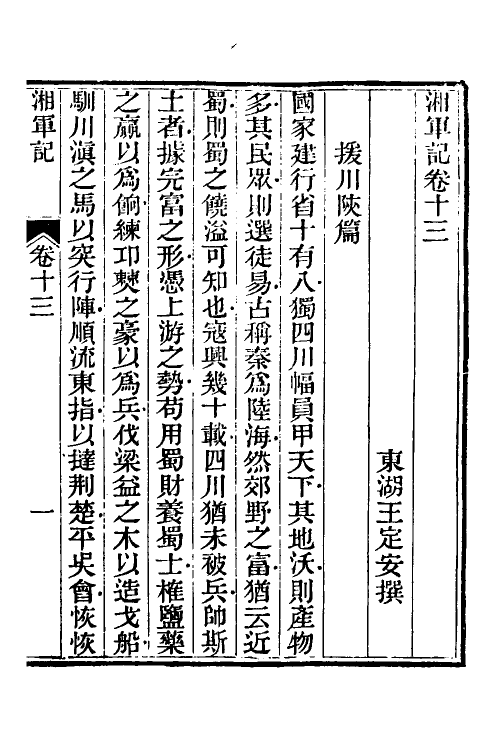 湘軍記卷十三
東湖王定安撰
援川陝篇
國家建行省十有八獨四川幅員甲天下其地沃則產物
多其民眾則選徒易古稱秦爲陸海然郊野之富猶云近
蜀則蜀之饒溢可知也寇興幾十載四川猶未被兵帥斯
土者據完富之形憑上游之勢苟用蜀財養蜀士榷鹽藥
之贏以爲餉練卭僰之豪以爲兵伐梁益之木以造戈船
馴川滇之馬以突行陣順流東指以撻荆楚平吳會恢恢
湘軍記
卷十三
一